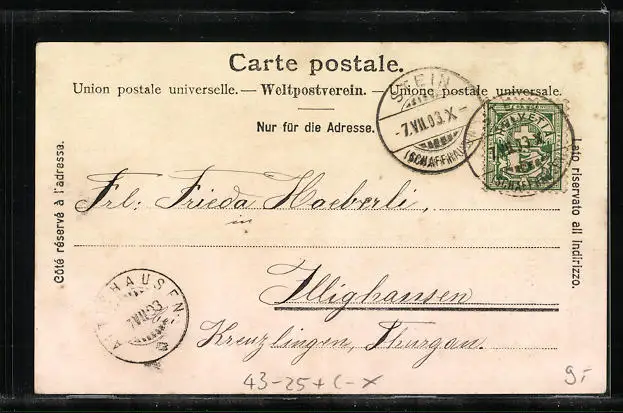 Carte postale.
Union postale universelle. — Weltpostverein. — Unione postale universale.
Nur für die Adresse.
Côté réservé à l'adresse.
Lato riservato all indirizzo.
STEIN
-7.VII.03.X-
(SCHAFFHAUSEN)
HELVETIA
Frl: Frieda Haeberli,
in
Illighausen
Kreuzlingen, Thurgau.
7.VII.03
43-25+C-X
9.-